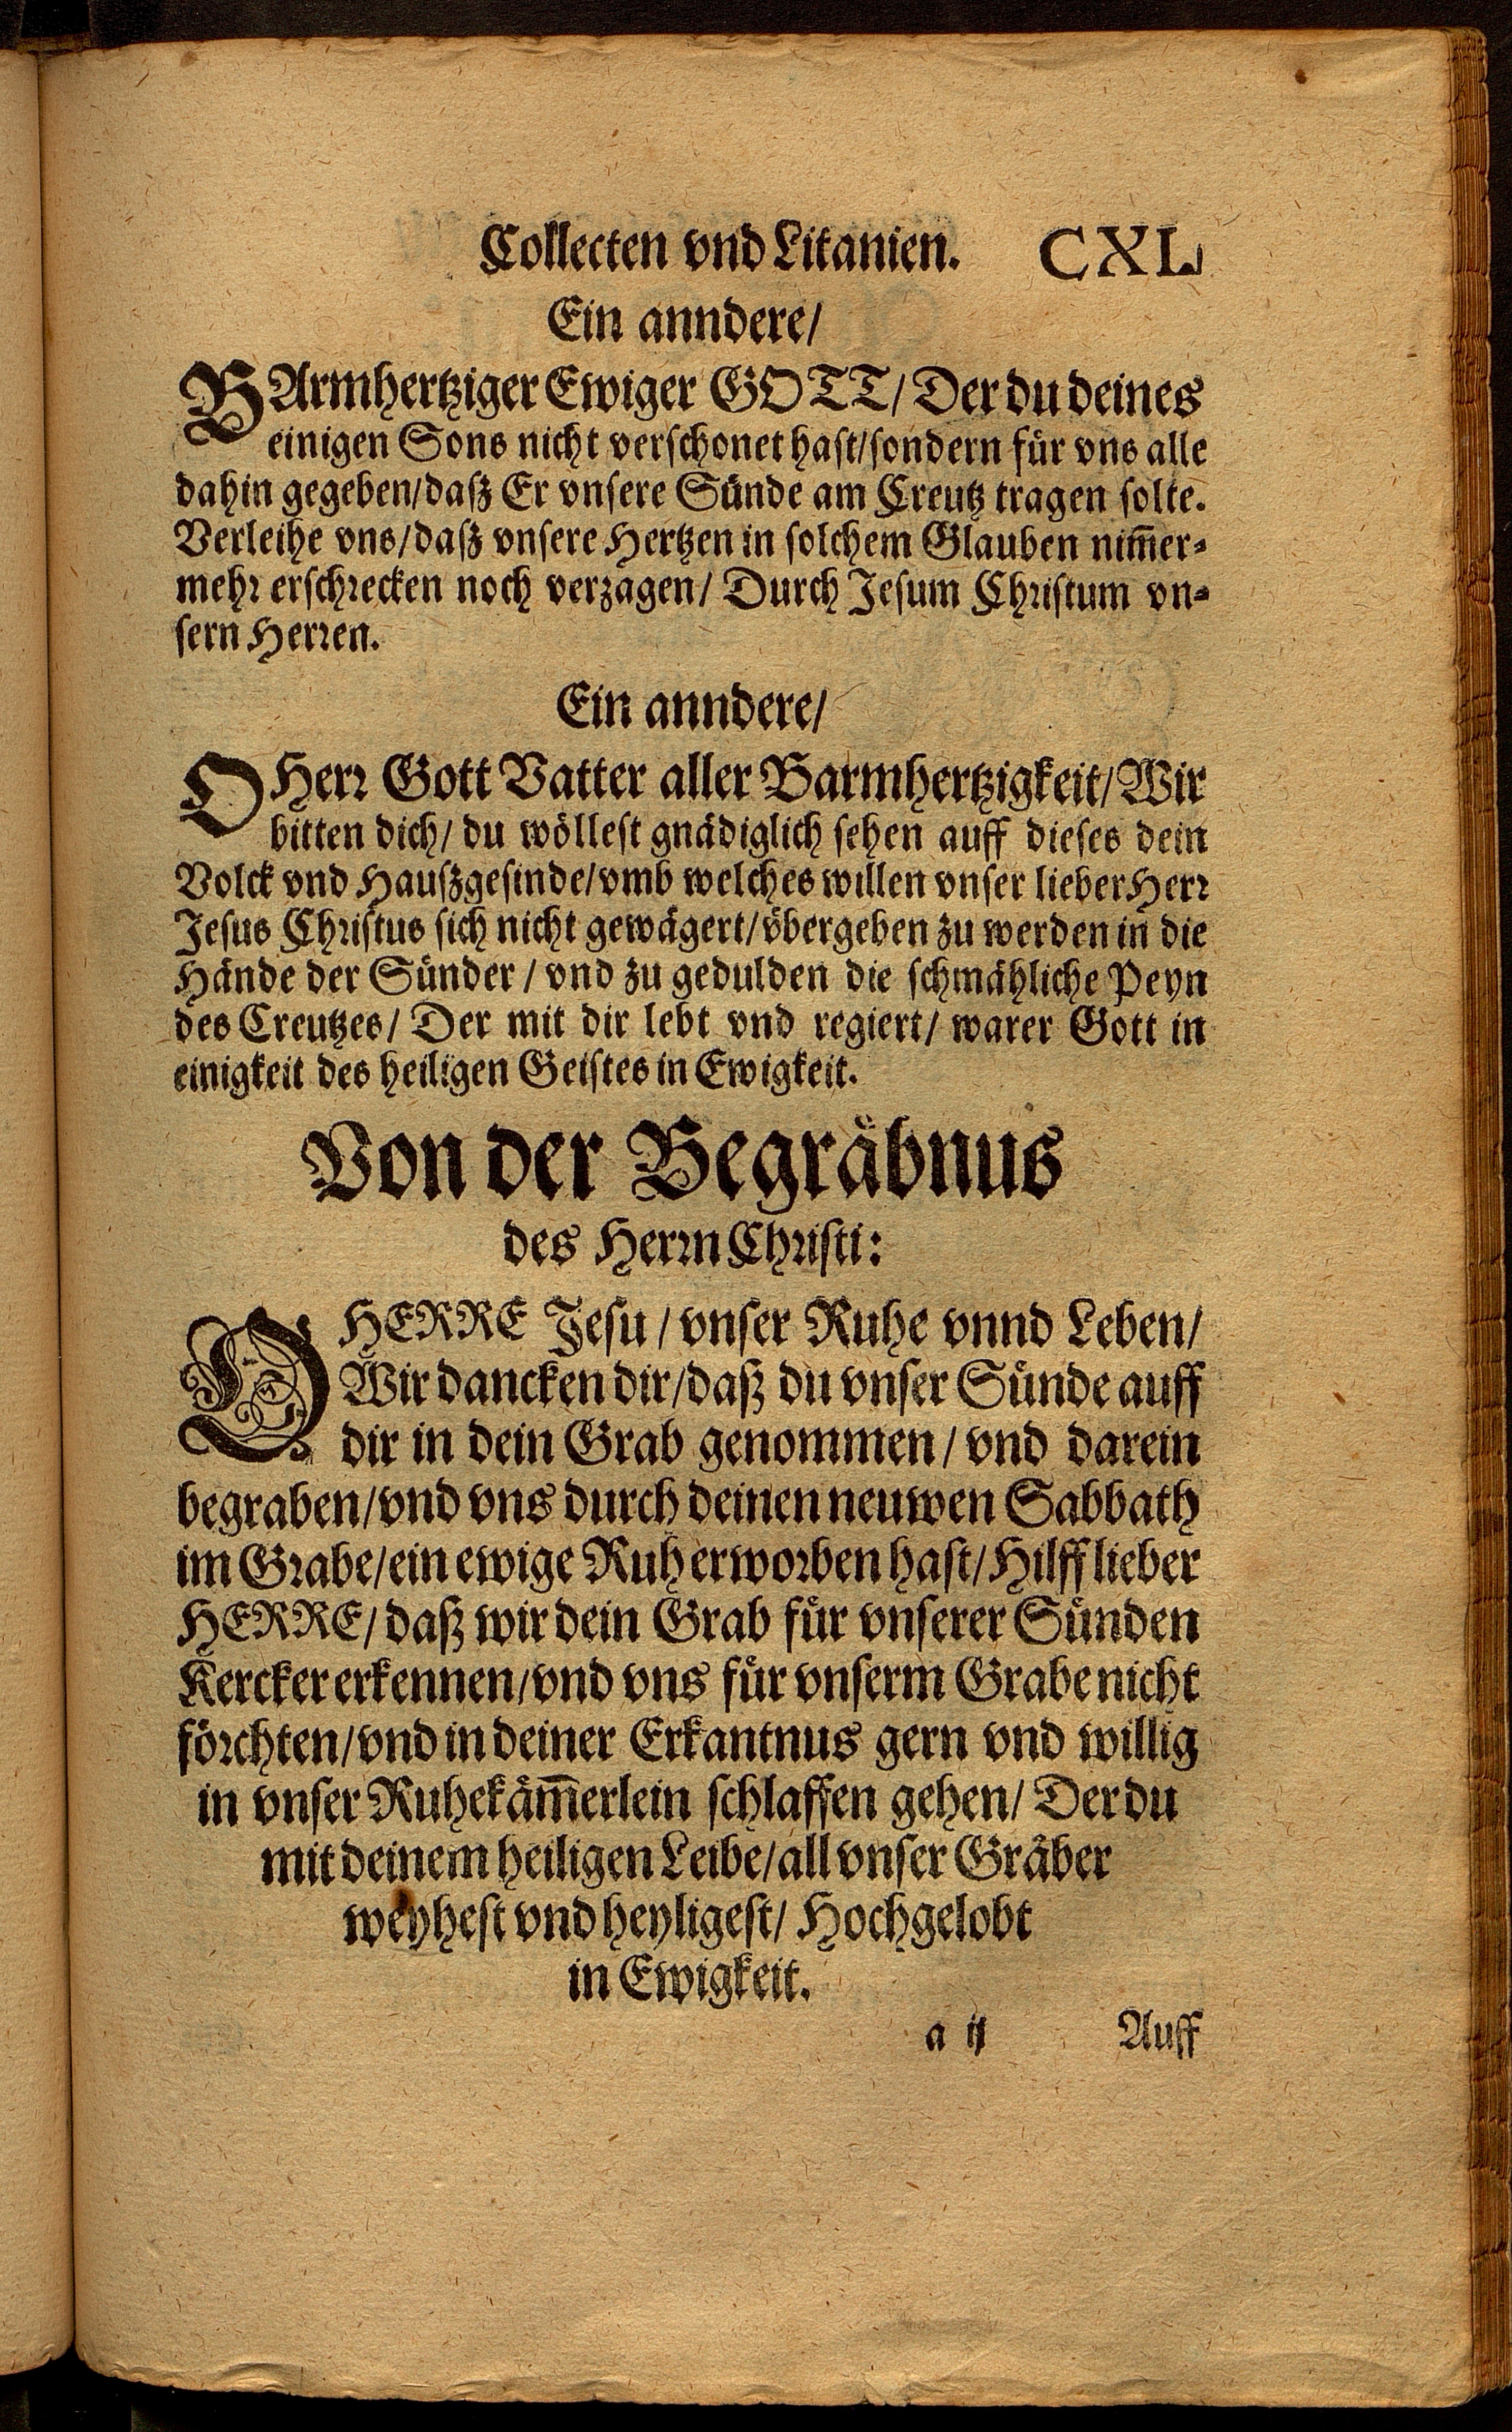 Collecten vnd Litanien. CXL
Ein anndere/
BArmhertziger Ewiger GOTT/ Der du deines
einigen Sons nicht verschonet hast/sondern für vns alle
dahin gegeben/daß Er vnsere Sünde am Creutz tragen solte.
Verleihe vns/daß vnsere Hertzen in solchem Glauben nim̄er-
mehr erschrecken noch verzagen/ Durch Jesum Christum vn-
sern Herren.
Ein anndere/
O Herr Gott Vatter aller Barmhertzigkeit/ Wir
bitten dich/ du wöllest gnädiglich sehen auff dieses dein
Volck vnd Haußgesinde/vmb welches willen vnser lieber Herr
Jesus Christus sich nicht gewägert/vbergeben zu werden in die
Hände der Sünder/ vnd zu gedulden die schmähliche Peyn
des Creutzes/ Der mit dir lebt vnd regiert/ warer Gott in
einigkeit des heiligen Geistes in Ewigkeit.
Von der Begräbnus
des Herrn Christi:
O HERRE Jesu/ vnser Ruhe vnnd Leben/
Wir dancken dir/daß du vnser Sünde auff
dir in dein Grab genommen/ vnd darein
begraben/vnd vns durch deinen neuwen Sabbath
im Grabe/ein ewige Ruh erworben hast/ Hilff lieber
HERRE/ daß wir dein Grab für vnserer Sünden
Kercker erkennen/vnd vns für vnserm Grabe nicht
förchten/vnd in deiner Erkantnus gern vnd willig
in vnser Ruhekäm̄erlein schlaffen gehen/ Der du
mit deinem heiligen Leibe/all vnser Gräber
weyhest vnd heyligest/ Hochgelobt
in Ewigkeit.
a ij Auff